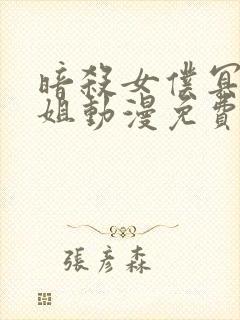 暗殺女僕冥
姐動漫免費
張彥森